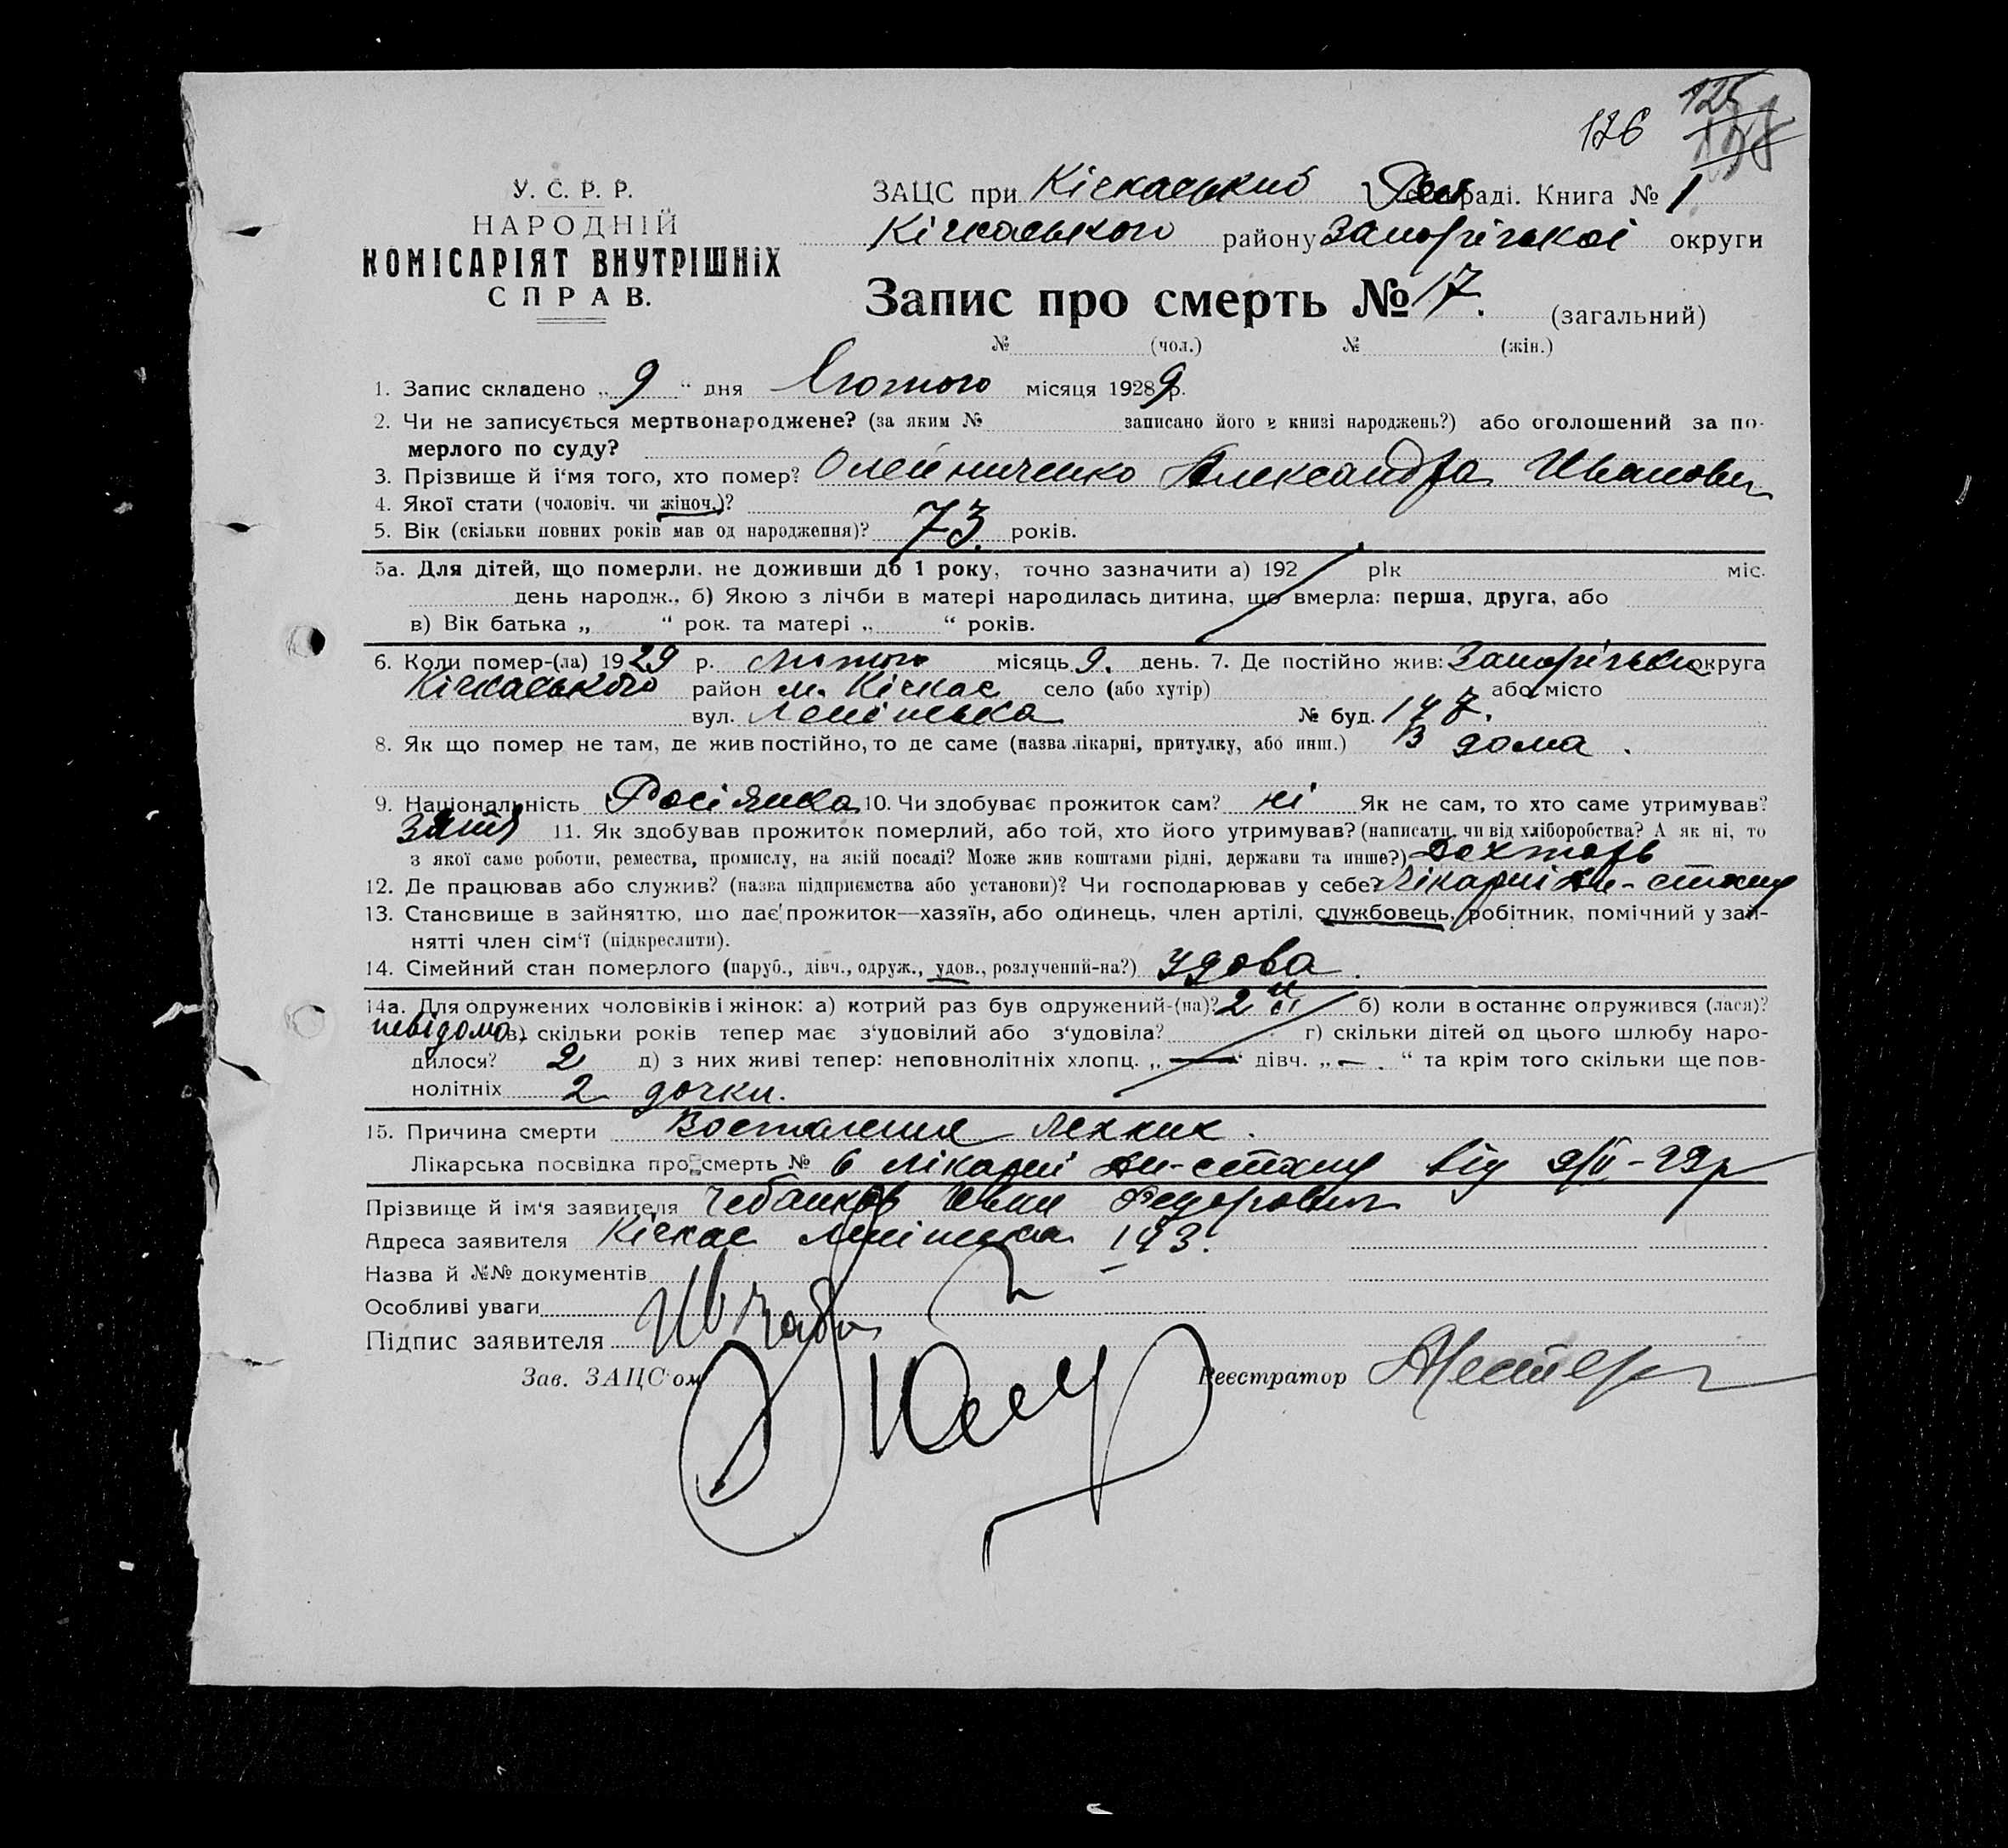 126 125
У. С. Р. Р.
НАРОДНІЙ
КОМІСАРІЯТ ВНУТРІШНІХ
СПРАВ.
ЗАЦС при Кічкаський раді. Книга № 1
Кічкаського району Запорізькоі округи
Запис про смерть № 17. (загальний)
№ (чол.) № (жін.)
1. Запис складено „ 9 “ дня Лютого місяця 1929 р.
2. Чи не записується мертвонароджене? (за яким № записано його в книзі народжень?) або оголошений за по-
мерлого по суду?
3. Прізвище й ім'мя того, хто помер? Олейниченко Александра Иванови
4. Якої стати (чоловіч. чи жіноч.)?
5. Вік (скільки повних років мав од народження)? 73. років.
5а. Для дітей, що померли, не доживши до 1 року, точно зазначити а) 192 рік міс.
день народж., б) Якою з лічби в матері народилась дитина, що вмерла: перша, друга, або
в) Вік батька „ “ рок. та матері „ “ років.
6. Коли помер-(ла) 1929 р. лютого місяць 9. день. 7. Де постійно жив: Запорізька округа
Кічкаського район м. Кічкас село (або хутір) або місто
вул. Ленінська № буд. 147.
8. Як що помер не там, де жив постійно, то де саме (назва лікарні, притулку, або инш.) В дома.
9. Національність Росіянка 10. Чи здобуває прожиток сам? ні Як не сам, то хто саме утримував?
Зять 11. Як здобував прожиток померлий, або той, хто його утримував? (написати, чи від хліборобства? А як ні, то
з якої саме роботи, ремества, промислу, на якій посаді? Може жив коштами рідні, держави та инше?) Дохторь
12. Де працював або служив? (назва підприємства або установи)? Чи господарював у себе? Лікарні Дн-стану
13. Становище в зайняттю, що дає прожиток—хазяїн, або одинець, член артілі, службовець, робітник, помічний у зай-
нятті член сім'ї (підкреслити).
14. Сімейний стан померлого (паруб., дівч., одруж., удов., розлучений-на?) удова.
14а. Для одружених чоловіків і жінок: а) котрий раз був одружений-(на)? 2 й б) коли востаннє одружився (лася)?
невідомо в) скільки років тепер має з'удовілий або з'удовіла? г) скільки дітей од цього шлюбу наро-
дилося? 2 д) з них живі тепер: неповнолітніх хлопц. „ — “ дівч. „ — “ та крім того скільки ще пов-
нолітніх 2 дочки.
15. Причина смерти Воспаление легких.
Лікарська посвідка про смерть № 6 Лікарні Дн-стану від 9/II-29р
Прізвище й ім'я заявителя Чебанков Іван Федорович
Адреса заявителя Кічкас Ленінська 143.
Назва й №№ документів
Особливі уваги
Підпис заявителя
Зав. ЗАЦС'ом Реєстратор